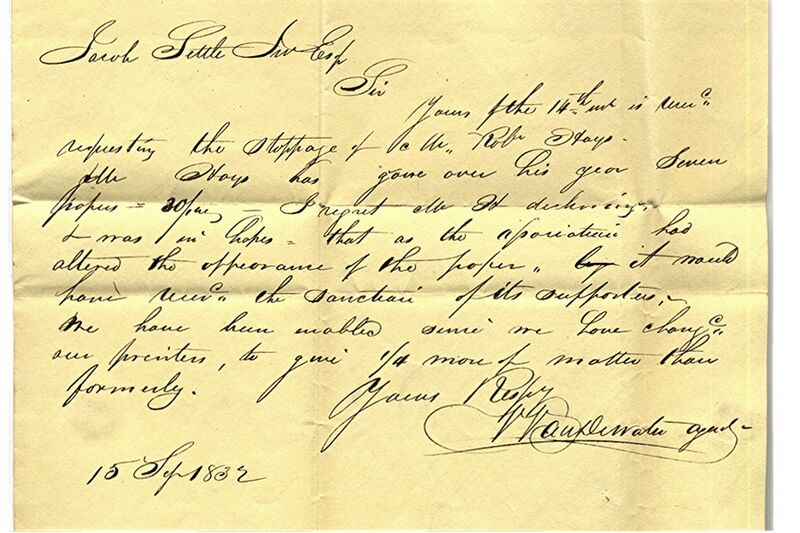 Jacob Settle Jnr Esq
Sir
Yours of the 14th inst is recc.
requesting the Stoppage of Mr. Robt Hays.
Mr Hays has gone over his year Seven
papers = 30 — I regret Mr H declining.
I was in hopes = that as the association had
altered the appearance of the paper „ it would
have recc. the sanction of its supporters.
We have been enabled since we have changc.
our printers, to give 1/4 more of matter than
formerly.
Yours Respy
VanDewater agent
15 Sep 1832